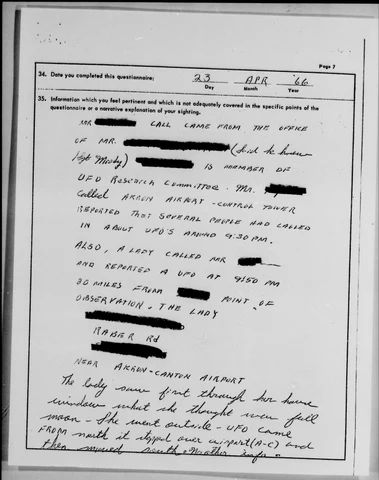 Page 7
34. Date you completed this questionnaire: 23 APR '66
Day Month Year
35. Information which you feel pertinent and which is not adequately covered in the specific points of the
questionnaire or a narrative explanation of your sighting.
MR CALL CAME FROM THE OFFICE
OF MR. (Said he knew
Sgt Moody) IS MEMBER OF
UFO RESEARCH COMMITTEE. MR.
CALLED AKRON AIRPORT - CONTROL TOWER
REPORTED THAT SEVERAL PEOPLE HAD CALLED
IN ABOUT UFO'S AROUND 9:30 PM.
ALSO, A LADY CALLED MR
AND REPORTED A UFO AT 9:50 PM
20 MILES FROM POINT OF
OBSERVATION. THE LADY
RABER Rd
NEAR AKRON-CANTON AIRPORT
The lady saw first through her house
window what she thought was full
moon - She went outside - UFO came
FROM north it stopped over airport (A-C) and
then moved south